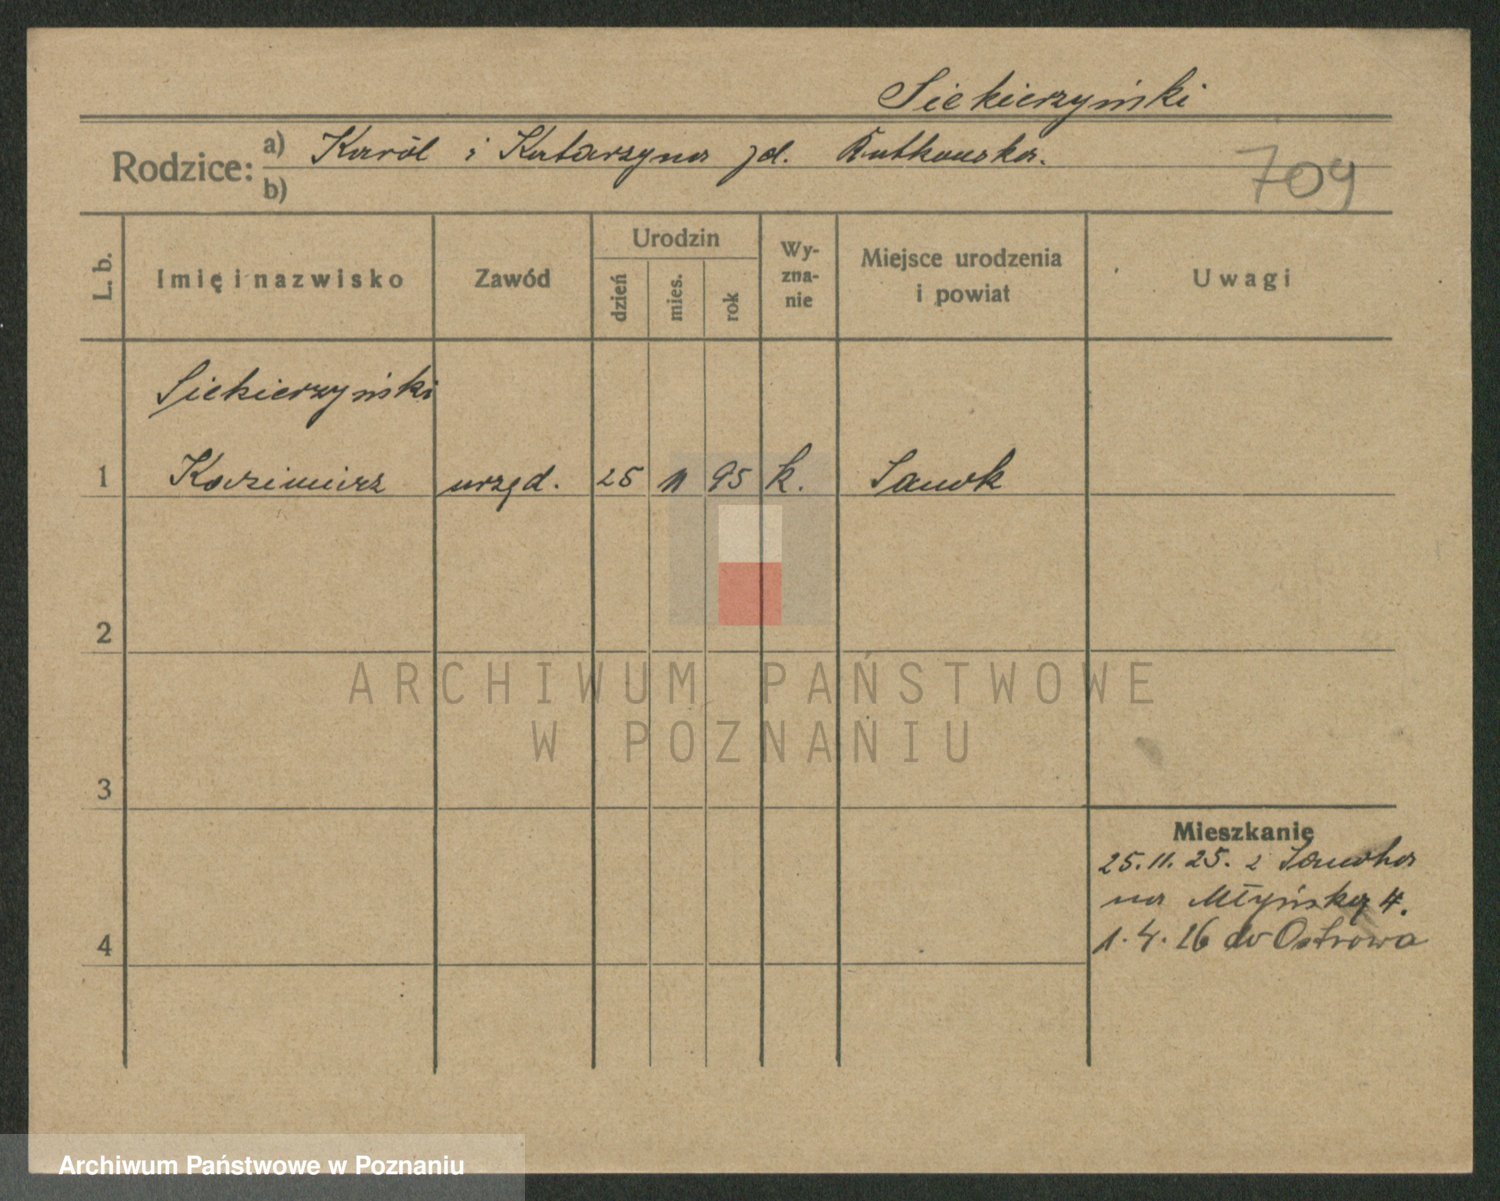 Siekierzyński
Rodzice: a) Karól i Katarzyna jd. Rutkowska.
b)
709
L. b.
Imię i nazwisko
Zawód
Urodzin
dzień
mies.
rok
Wy-
zna-
nie
Miejsce urodzenia
i powiat
Uwagi
Siekierzyński
1 Kazimierz urzęd. 25 11 95 k. Sanok
2
3
4
Mieszkanie
25.11.25. z Sanoka
na Młyńską 4.
1.4.26 do Ostrowa
ARCHIWUM PAŃSTWOWE
W POZNANIU
Archiwum Państwowe w Poznaniu